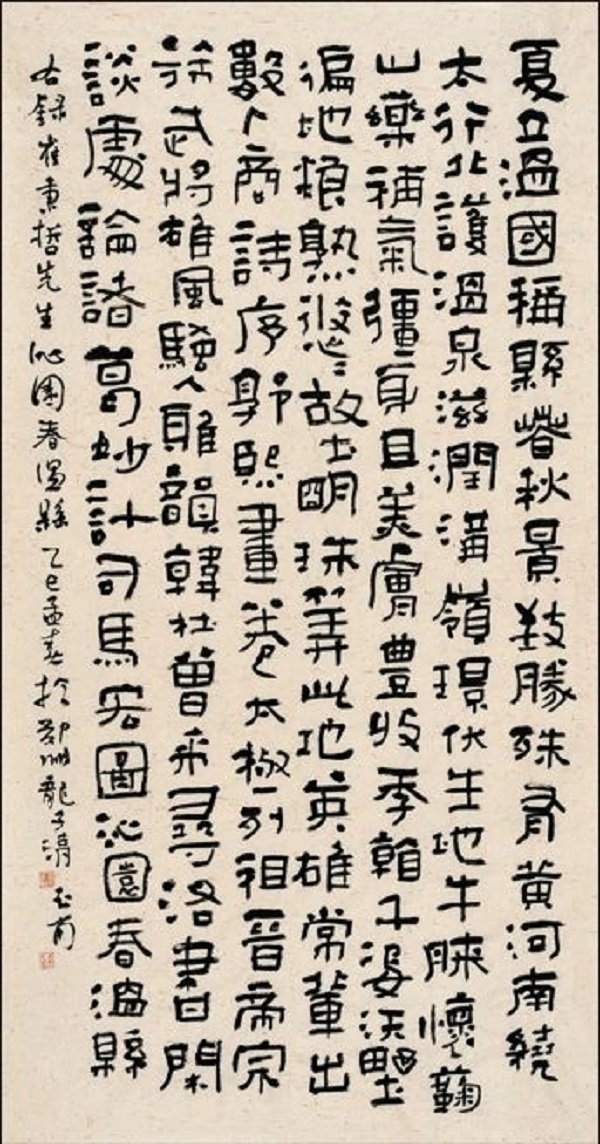 夏立溫國稱縣春秋景致勝殊有黃河南繞
太行北護溫泉滋潤溝嶺環伏生地牛膝懷菊
山藥補氣彊身且美膚豊收季千姿沃壄
遍地熟悠悠故土明珠此地英雄常輩出
數卜商詩序郭熙畫卷太極列祖晉帝宗
族武將雄風騷人雅韻韓杜曾來尋洛書閑
談處論諸葛妙計司馬宏圖沁園春溫縣
右錄崔秉哲先生沁園春溫縣乙巳孟春於鄭州龍子湖玉甫